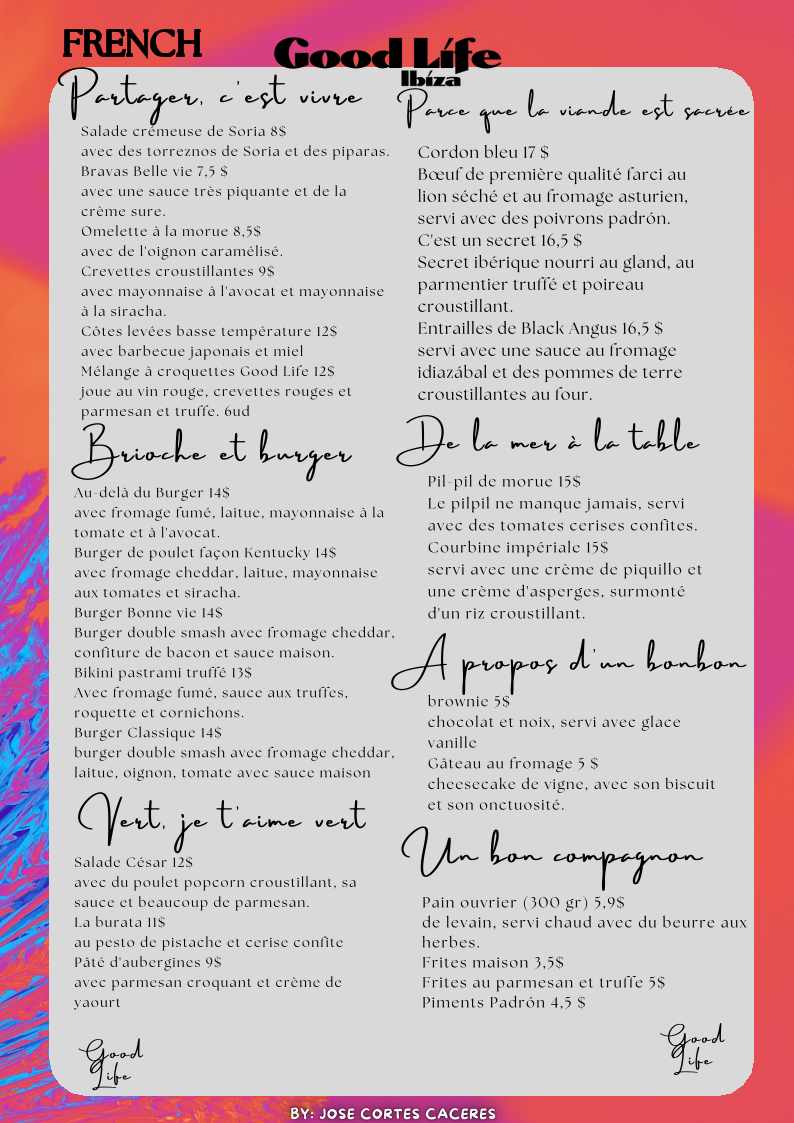 FRENCH
Good Life
Ibíza
Partager, c'est vivre
Salade crémeuse de Soria 8$
avec des torreznos de Soria et des piparas.
Bravas Belle vie 7,5 $
avec une sauce très piquante et de la
crème sure.
Omelette à la morue 8,5$
avec de l'oignon caramélisé.
Crevettes croustillantes 9$
avec mayonnaise à l'avocat et mayonnaise
à la siracha.
Côtes levées basse température 12$
avec barbecue japonais et miel
Mélange à croquettes Good Life 12$
joue au vin rouge, crevettes rouges et
parmesan et truffe. 6ud
Brioche et burger
Au-delà du Burger 14$
avec fromage fumé, laitue, mayonnaise à la
tomate et à l'avocat.
Burger de poulet façon Kentucky 14$
avec fromage cheddar, laitue, mayonnaise
aux tomates et siracha.
Burger Bonne vie 14$
Burger double smash avec fromage cheddar,
confiture de bacon et sauce maison.
Bikini pastrami truffé 13$
Avec fromage fumé, sauce aux truffes,
roquette et cornichons.
Burger Classique 14$
burger double smash avec fromage cheddar,
laitue, oignon, tomate avec sauce maison
Vert, je t'aime vert
Salade César 12$
avec du poulet popcorn croustillant, sa
sauce et beaucoup de parmesan.
La burata 11$
au pesto de pistache et cerise confite
Pâté d'aubergines 9$
avec parmesan croquant et crème de
yaourt
Good
Life
Parce que la viande est sacrée
Cordon bleu 17 $
Bœuf de première qualité farci au
lion séché et au fromage asturien,
servi avec des poivrons padrón.
C'est un secret 16,5 $
Secret ibérique nourri au gland, au
parmentier truffé et poireau
croustillant.
Entrailles de Black Angus 16,5 $
servi avec une sauce au fromage
idiazábal et des pommes de terre
croustillantes au four.
De la mer à la table
Pil-pil de morue 15$
Le pilpil ne manque jamais, servi
avec des tomates cerises confites.
Courbine impériale 15$
servi avec une crème de piquillo et
une crème d'asperges, surmonté
d'un riz croustillant.
A propos d'un bonbon
brownie 5$
chocolat et noix, servi avec glace
vanille
Gâteau au fromage 5 $
cheesecake de vigne, avec son biscuit
et son onctuosité.
Un bon compagnon
Pain ouvrier (300 gr) 5,9$
de levain, servi chaud avec du beurre aux
herbes.
Frites maison 3,5$
Frites au parmesan et truffe 5$
Piments Padrón 4,5 $
Good
Life
BY: JOSE CORTES CACERES